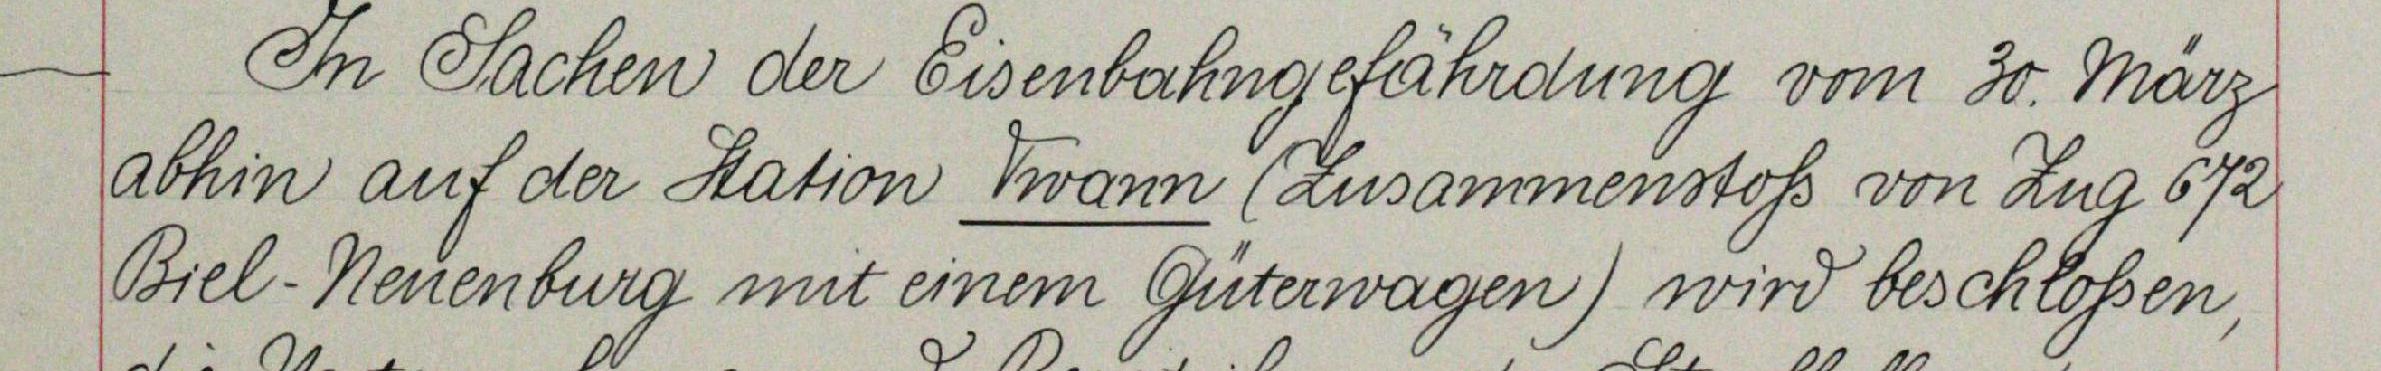 In Sachen der Eisenbahngefährdung vom 30. März
abhin auf der Station Twann (Zusammenstoß von Zug 672
Biel-Neuenburg mit einem Güterwagen) wird beschloßen,